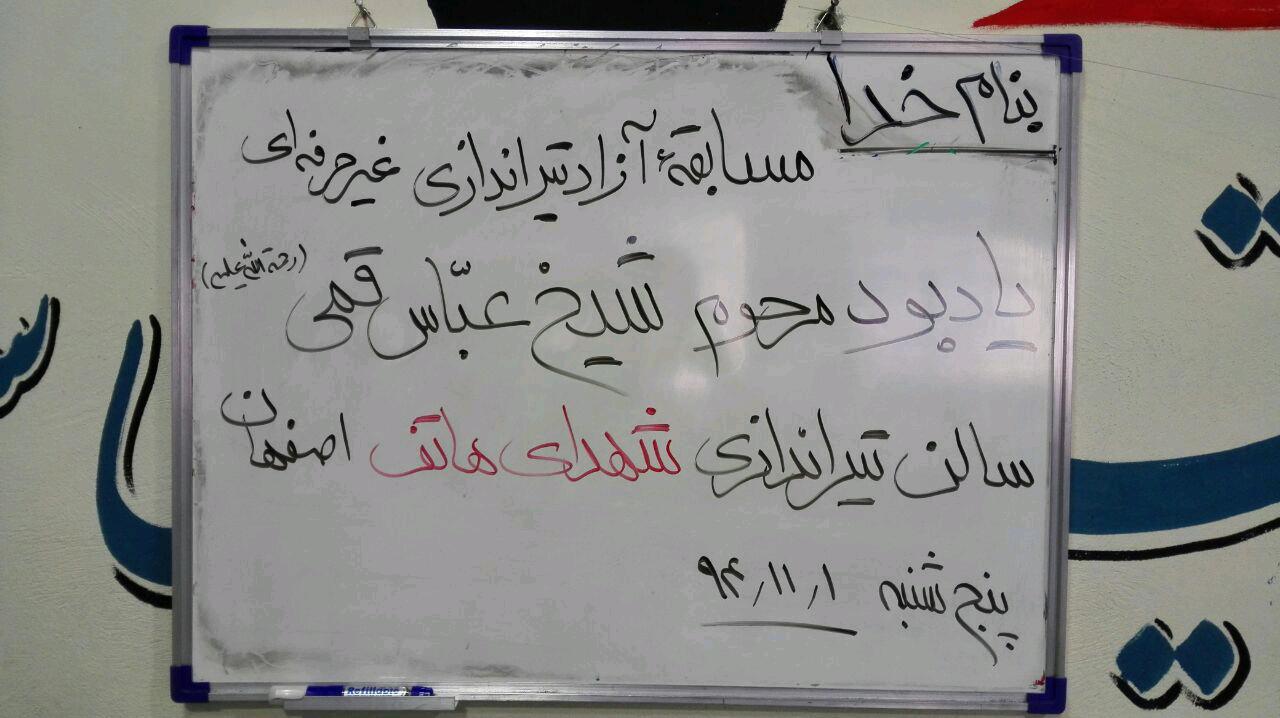 بنام خدا
مسابقهٔ آزاد تیراندازی غیرحرفه‌ای
یادبود مرحوم شیخ عبّاس قمی (رحمة الله علیه)
سالن تیراندازی شهدای هاتف اصفهان
پنج شنبه ۹۴/۱۱/۱
Refillable